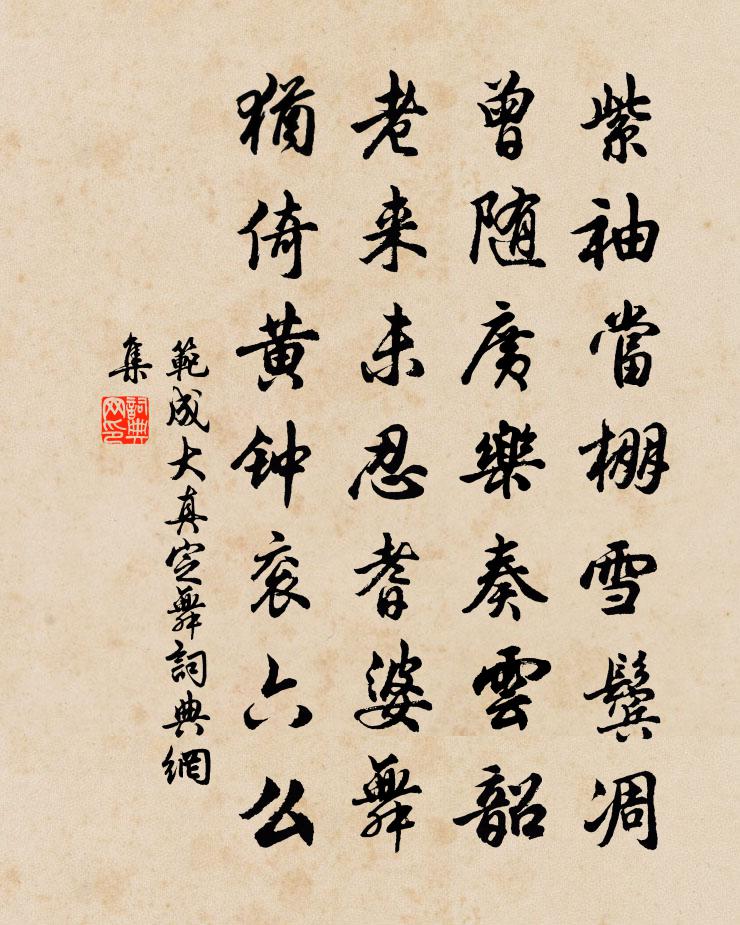 紫袖當棚雪鬓凋
曾随廣樂奏雲韶
老来未忍耆婆舞
猶倚黄钟衮六幺
範成大真定舞詞典網
集
詞典
网印